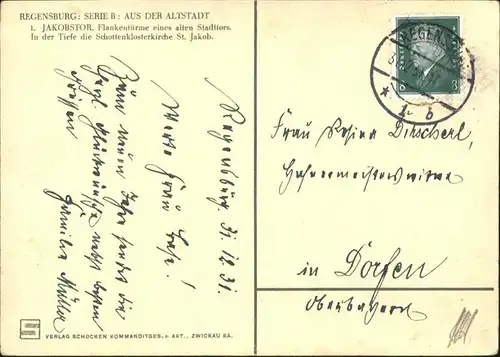 REGENSBURG: SERIE B: AUS DER ALTSTADT
1. JAKOBSTOR. Flankentürme eines alten Stadttors.
In der Tiefe die Schottenklosterkirche St. Jakob.
Regensburg, 31. 12. 31.
Werte Frau Base!
Zum neuen Jahre sendet die
herzl. Glückwünsche nebst besten
Grüssen
Familie Müller
REGENSBURG
1 b
8 8
Frau Rosina Dirscherl,
Hafnermeisterswitwe
in Dorfen
Oberbayern
VERLAG SCHOCKEN KOMMANDITGES. a. AKT., ZWICKAU SA.